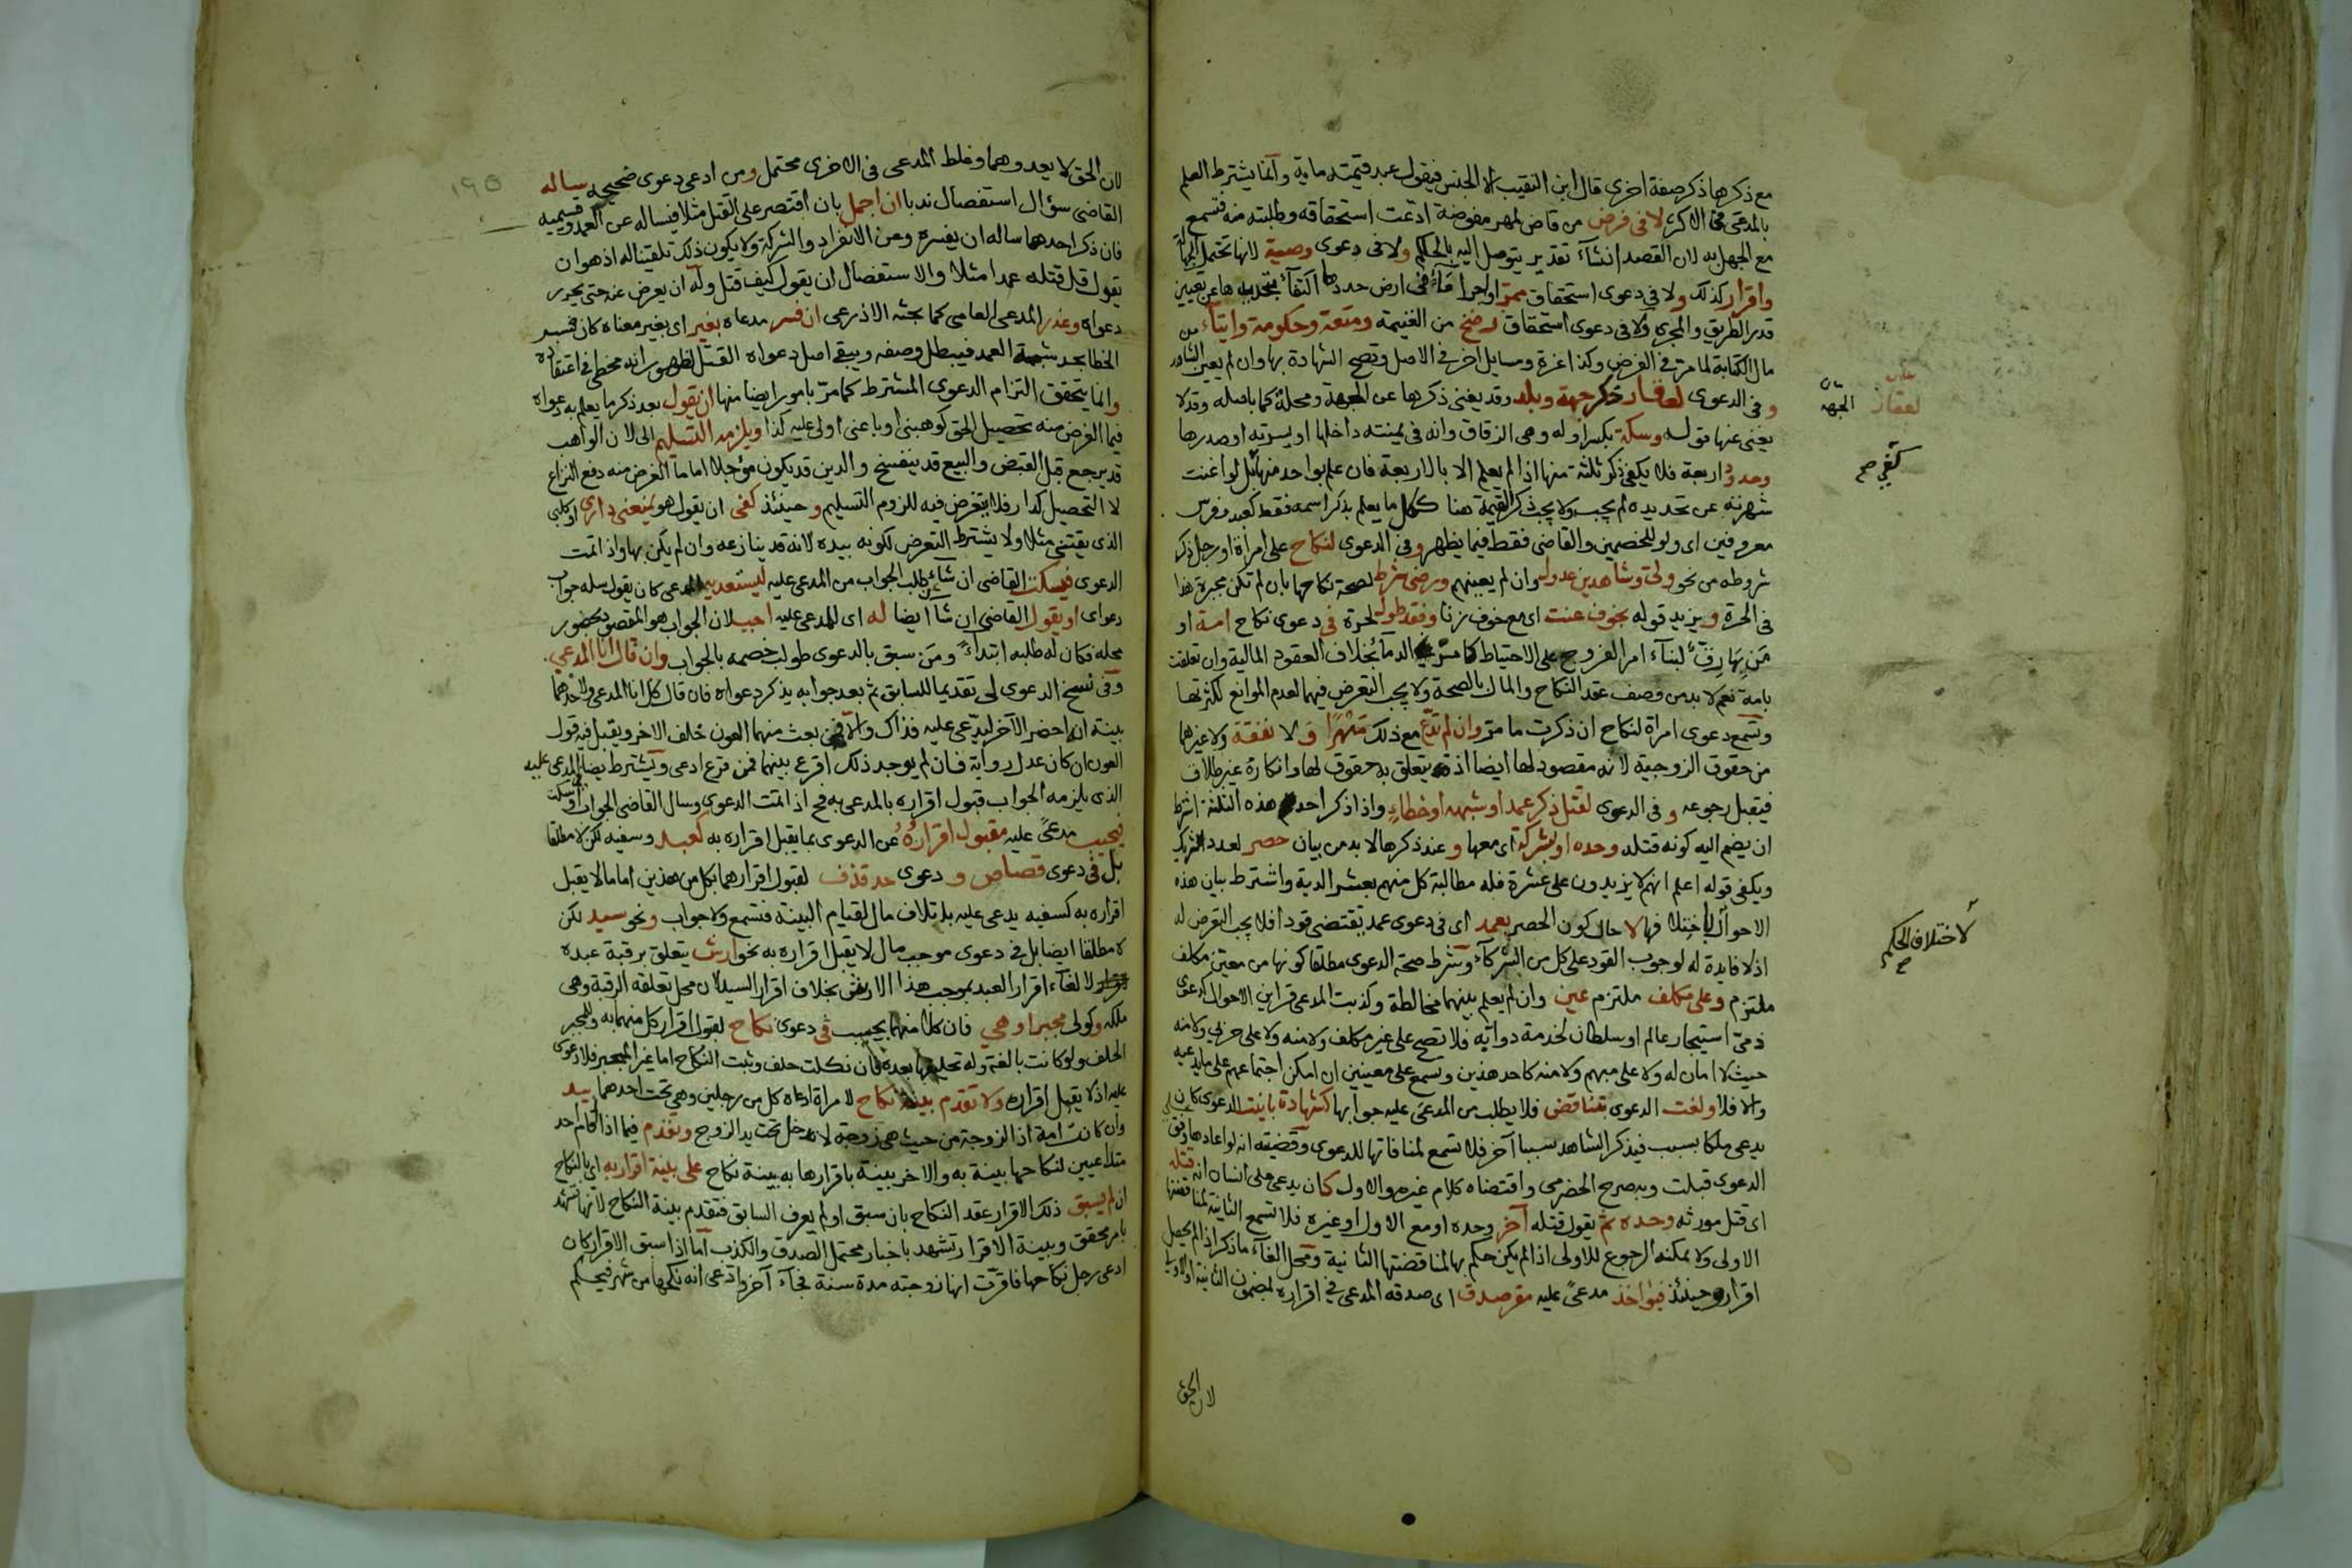 مع ذكرها ذكر صفة اخرى قال ابن النقيب الا الجنس فيقول عبد قيمته ماية وانما يشترط العلم
بالمدعى في الاكثر لا في فرض من قاض لمهر مفوضة ادعت استحقاقه وطلبته منه فتسمع
مع الجهل به لان القصد انشآء تقدير يتوصل اليه بالحكم ولا في دعوى وصية لانها تحتمل الجهالة
واقرار كذلك ولا في دعوى استحقاق ممر او اجرآء مآء في ارض حددها اكتفآء بتحديدها عن تعيين
قدر الطريق والمجرى ولا في دعوى استحقاق رضخ من الغنيمة ومتعة وحكومة وايتآء من
مال الكتابة لما مر في الفرض وكذا غرة ومسايل اخر في الاصل وتصح الشهادة بها وان لم يعين الشاهد
و في الدعوى لعقار ذكر جهة وبلد وقد يغني ذكرها عن الجهة ومحلة كما باصله وقد لا
يغني عنها قوله وسكة بكسر اوله وهي الزقاق وانه في يمينته داخلها او يسرته او صدرها
وحدود اربعة فلا يكفي ذكر ثلثة منها اذا لم يعلم الا بالاربعة فان علم بواحد منها بل لو اغنت
شهرته عن تحديده لم يجب ولا يجب ذكر القيمة هنا ككل ما يعلم بذكر اسمه فقط كعبد وفرس
معروفين اى ولو للخصمين والقاضى فقط فيما يظهر وفي الدعوى لنكاح على امراة او رجل ذكر
شروطه من نحو ولي وشاهدين عدول وان لم يعينهم ورضى شرط لصحة نكاحها بان لم تكن مجبرة هذا
في الحرة ويزيد قوله بخوف عنت اى مع خوف زنا وفقد طول لحرة في دعوى نكاح امة او
من بها رق لبنآء امر الفروج على الاحتياط كالدمآء بخلاف العقود المالية وان تعلقت
بامة نعم لا بد من وصف عقد النكاح والمال بالصحة ولا يجب التعرض فيهما لعدم الموانع لكثرتها
وتسمع دعوى امراة لنكاح ان ذكرت ما مر وان لم تدع مع ذلك مهرا ولا نفقة ولا غيرهما
من حقوق الزوجية لانه مقصود لها ايضا اذ يتعلق به حقوق لها وانكاره غير طلاق
فيقبل رجوعه و في الدعوى لقتل ذكر عمد او شبهه او خطاء واذا ذكر احد هذه الثلثة اشترط
ان يضم اليه كونه قتله وحده او بشركة اى معها و عند ذكرها لا بد من بيان حصر لعدد الشريك
ويكفي قوله اعلم انهم لا يزيدون على عشرة فله مطالبة كل منهم بعشر الدية واشترط بيان هذه
الاحوال لاختلافها لا حال كون الحصر بعمد اى في دعوى عمد تقتضى قودا فلا يجب التعرض له
اذ لا فايدة له لوجوب القود على كل من الشركآء وشرط صحة الدعوى مطلقا كونها من معين مكلف
ملتزم وعلى مكلف ملتزم عين وان لم يعلم بينهما مخالطة وكذبت المدعي قراين الاحوال كدعوى
ذمي استيجار عالم او سلطان لخدمة دوابه فلا تصح على غير مكلف ولا منه ولا على حربي ولا منه
حيث لا امان له ولا على مبهم ولا منه كاحد هذين وتسمع على معينين ان امكن اجتماعهم على ما يدعيه
والا فلا ولغت الدعوى بتناقض فلا يطلب من المدعى عليه جوابها كشهادة باينت الدعوى كان
يدعي ملكا بسبب فيذكر الشاهد سببا آخر فلا تسمع لمنافاتها للدعوى وقضيته انه لو اعادها وفق
الدعوى قبلت وبه صرح الحضرمي واقتضاه كلام غيره والاول كان يدعي على انسان انه قتله
اى قتل مورثه وحده ثم يقول قتله آخر وحده او مع الاول او غيره فلا تسمع الثانية لمناقضتها
الاولى ولا يمكنه الرجوع للاولى اذا لم يكن حكم بها لمناقضتها الثانية ومحل الغآء ما ذكر اذا لم يحصل
اقرار وحينئذ فيؤاخذ مدعى عليه مقر صدق اى صدقه المدعي في اقراره لمضمون الثانية او الاولى
لان الحق
على
لعقار
الجهة
كفي صح
لاختلاف الحكم
صح
١٩٥
لان الحق لا يعدوهما وغلط المدعى في الاخرى محتمل ومن ادعى دعوى صحيحة ساله
القاضى سؤال استفصال ندبا ان اجمل بان اقتصر على القتل مثلا فيساله عن العمد وقسيميه
فان ذكر احدهما ساله ان يفسره وعن الانفراد والشركة ولا يكون ذلك تلقينا له اذ هو ان
يقول قل قتله عمدا مثلا والاستفصال ان يقول كيف قتل وله ان يعرض عنه حتى يحرر
دعواه وعذر المدعى العامي كما بحثه الاذرعى ان فسر مدعاه بغير اى بغير معناه كان فسر
الخطا بحد شبه العمد فيبطل وصفه ويبقى اصل دعواه القتل لظهور انه مخطي في اعتقاده
وانما يتحقق التزام الدعوى المشترط كما مر بامور ايضا منها ان يقول بعد ذكر ما يعلم به دعواه
فيما الغرض منه تحصيل الحق كوهبني او باعني او لي عليه كذا ويلزمه التسليم الى لان الواهب
قد يرجع قبل القبض والبيع قد ينفسخ والدين قد يكون مؤجلا اما ما الغرض منه دفع النزاع
لا التحصيل كدار فلا يتعرض فيه للزوم التسليم وحينئذ كفى ان يقول هو يمنعني داري او كلبي
الذي يقتنى مثلا ولا يشترط التعرض لكونه بيده لانه قد ينازعه وان لم يكن بها واذا تمت
الدعوى فيسكت القاضى ان شاء طلب الجواب من المدعى عليه ليستعد المدعى كان يقول سله جواب
دعواى او يقول القاضى ان شآء ايضا له اى للمدعى عليه اجب لان الجواب هو المقصود بحضور
محله فكان له طلبه ابتدآء ومن سبق بالدعوى طولب خصمه بالجواب وان قال انا المدعي
وفي نسخ الدعوى لي تقديما للسابق ثم بعد جوابه يذكر دعواه فان قال كل انا المدعى ولاحدهما
بينة انه احضر الآخر ليدعي عليه فذاك والا فمن بعث منهما العون خلف الاخر ويقبل فيه قول
العون ان كان عدل رواية فان لم يوجد ذلك اقرع بينهما فمن قرع ادعى ويشترط ايضا في المدعى عليه
الذي يلزمه الجواب قبول اقراره بالمدعى به فح اذا تمت الدعوى وسال القاضى الجواب او سكت
فيجيب مدعى عليه مقبول اقراره عن الدعوى بما يقبل اقراره به كعبد وسفيه لكن لا مطلقا
بل في دعوى قصاص و دعوى حد قذف لقبول اقرارهما بكل من هذين اما ما لا يقبل
اقراره به كسفيه يدعى عليه باتلاف مال لقيام البينة فتسمع ولا جواب ونحو سيد لكن
لا مطلقا ايضا بل في دعوى موجب مال لا يقبل اقراره به نحو ارش يتعلق برقبة عبده
لالغآء اقرار العبد بموجب هذا الارش بخلاف اقرار السيد لان محل تعلقه الرقبة وهي
ملكه وكولى مجبر او هي فان كلا منهما يجيب في دعوى نكاح لقبول اقرار كل منهما به وللمجبر
الحلف ولو كانت بالغة وله تحليفها بعده فان نكلت حلف وثبت النكاح اما غير المجبر فلا دعوى
عليه اذ لا يقبل اقراره ولا تقدم بينة نكاح لامراة ادعاه كل من رجلين وهي تحت احدهما بيد
وان كانت امة اذ الزوجة من حيث هي زوجة لا تدخل تحت يد الزوج وتقدم فيما اذا اقام احد
متداعيين لنكاحها بينة به والاخر بينة باقرارها به بينة نكاح على بينة اقرار به اى بالنكاح
ان لم يسبق ذلك الاقرار عقد النكاح بان سبق او لم يعرف السابق فتقدم بينة النكاح لانها تشهد
بامر محقق وبينة الاقرار تشهد باخبار محتمل الصدق والكذب اما اذا سبق الاقرار كان
ادعى رجل نكاحها فاقرت انها زوجته مدة سنة فجآء آخر وادعى انه نكحها من شهر فيحكم